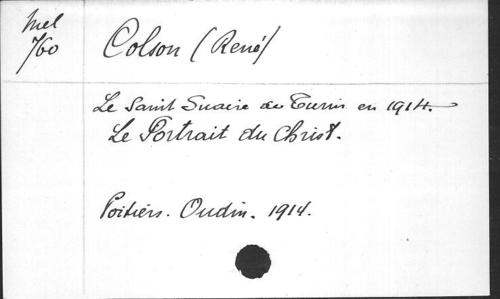 Mel
760
Colson (René)
Le Saint Suaire de Turin en 1914.
Le Portrait du Christ.
Poitiers. Oudin. 1914.